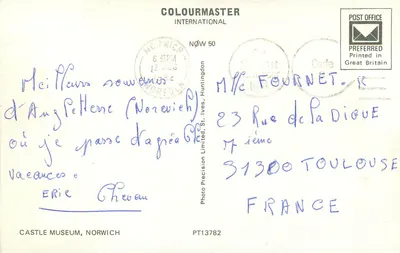 COLOURMASTER
INTERNATIONAL
POST OFFICE
PREFERRED
Printed in
Great Britain
NOW 50
NORWICH
Meilleurs souvenirs
d'Angleterre (Norwich)
où je passe d'agréables
vacances.
ERIC
Photo Precision Limited, St. Ives, Huntingdon
Mlle FOURNET. R
23 Rue de la DIGUE
7 ième
31300 TOULOUSE
FRANCE
CASTLE MUSEUM, NORWICH
PT13782